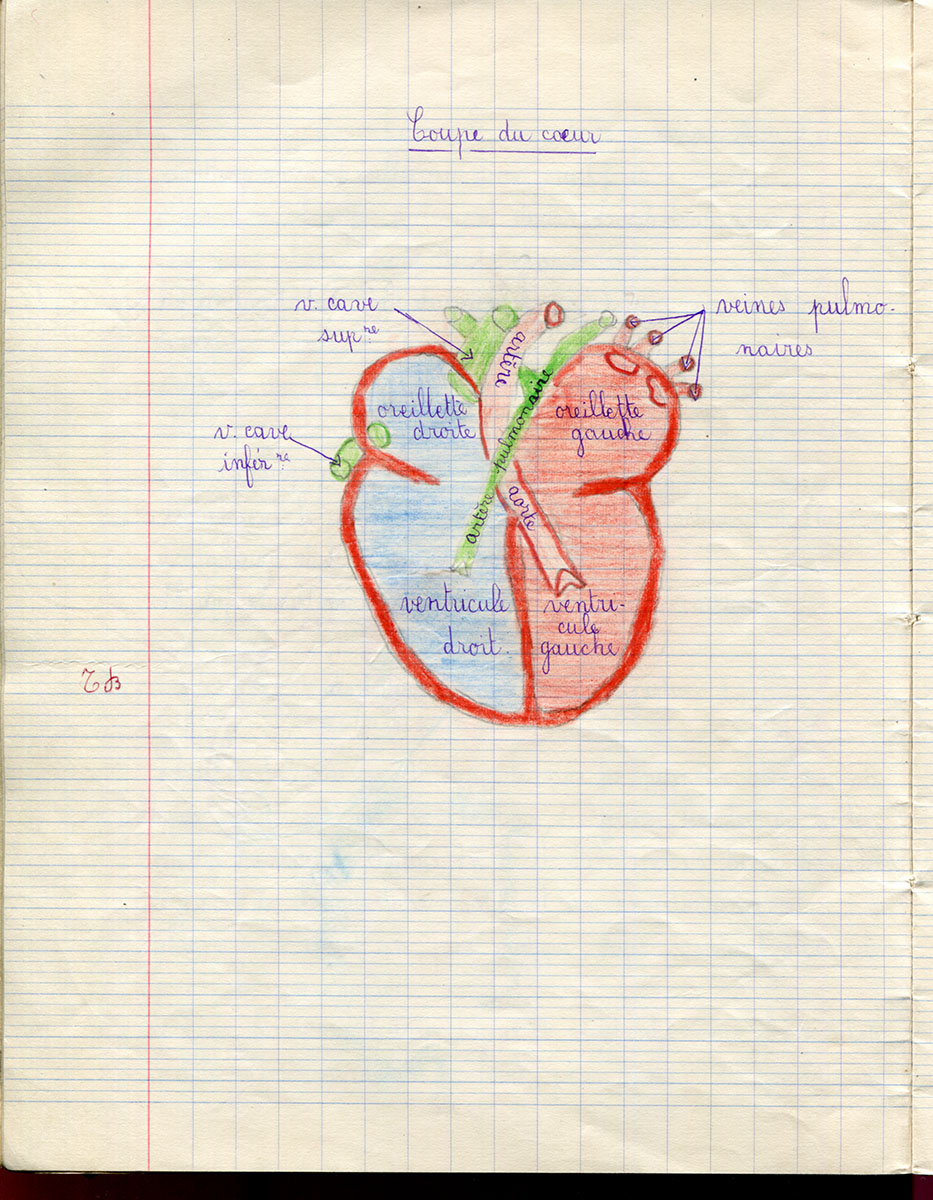 Coupe du cœur
v. cave
supre
veines pulmo-
naires
artère
artère pulmonaire
oreillette
droite
oreillette
gauche
v. cave
inférre
aorte
ventricule
droit.
ventri-
cule
gauche
TB